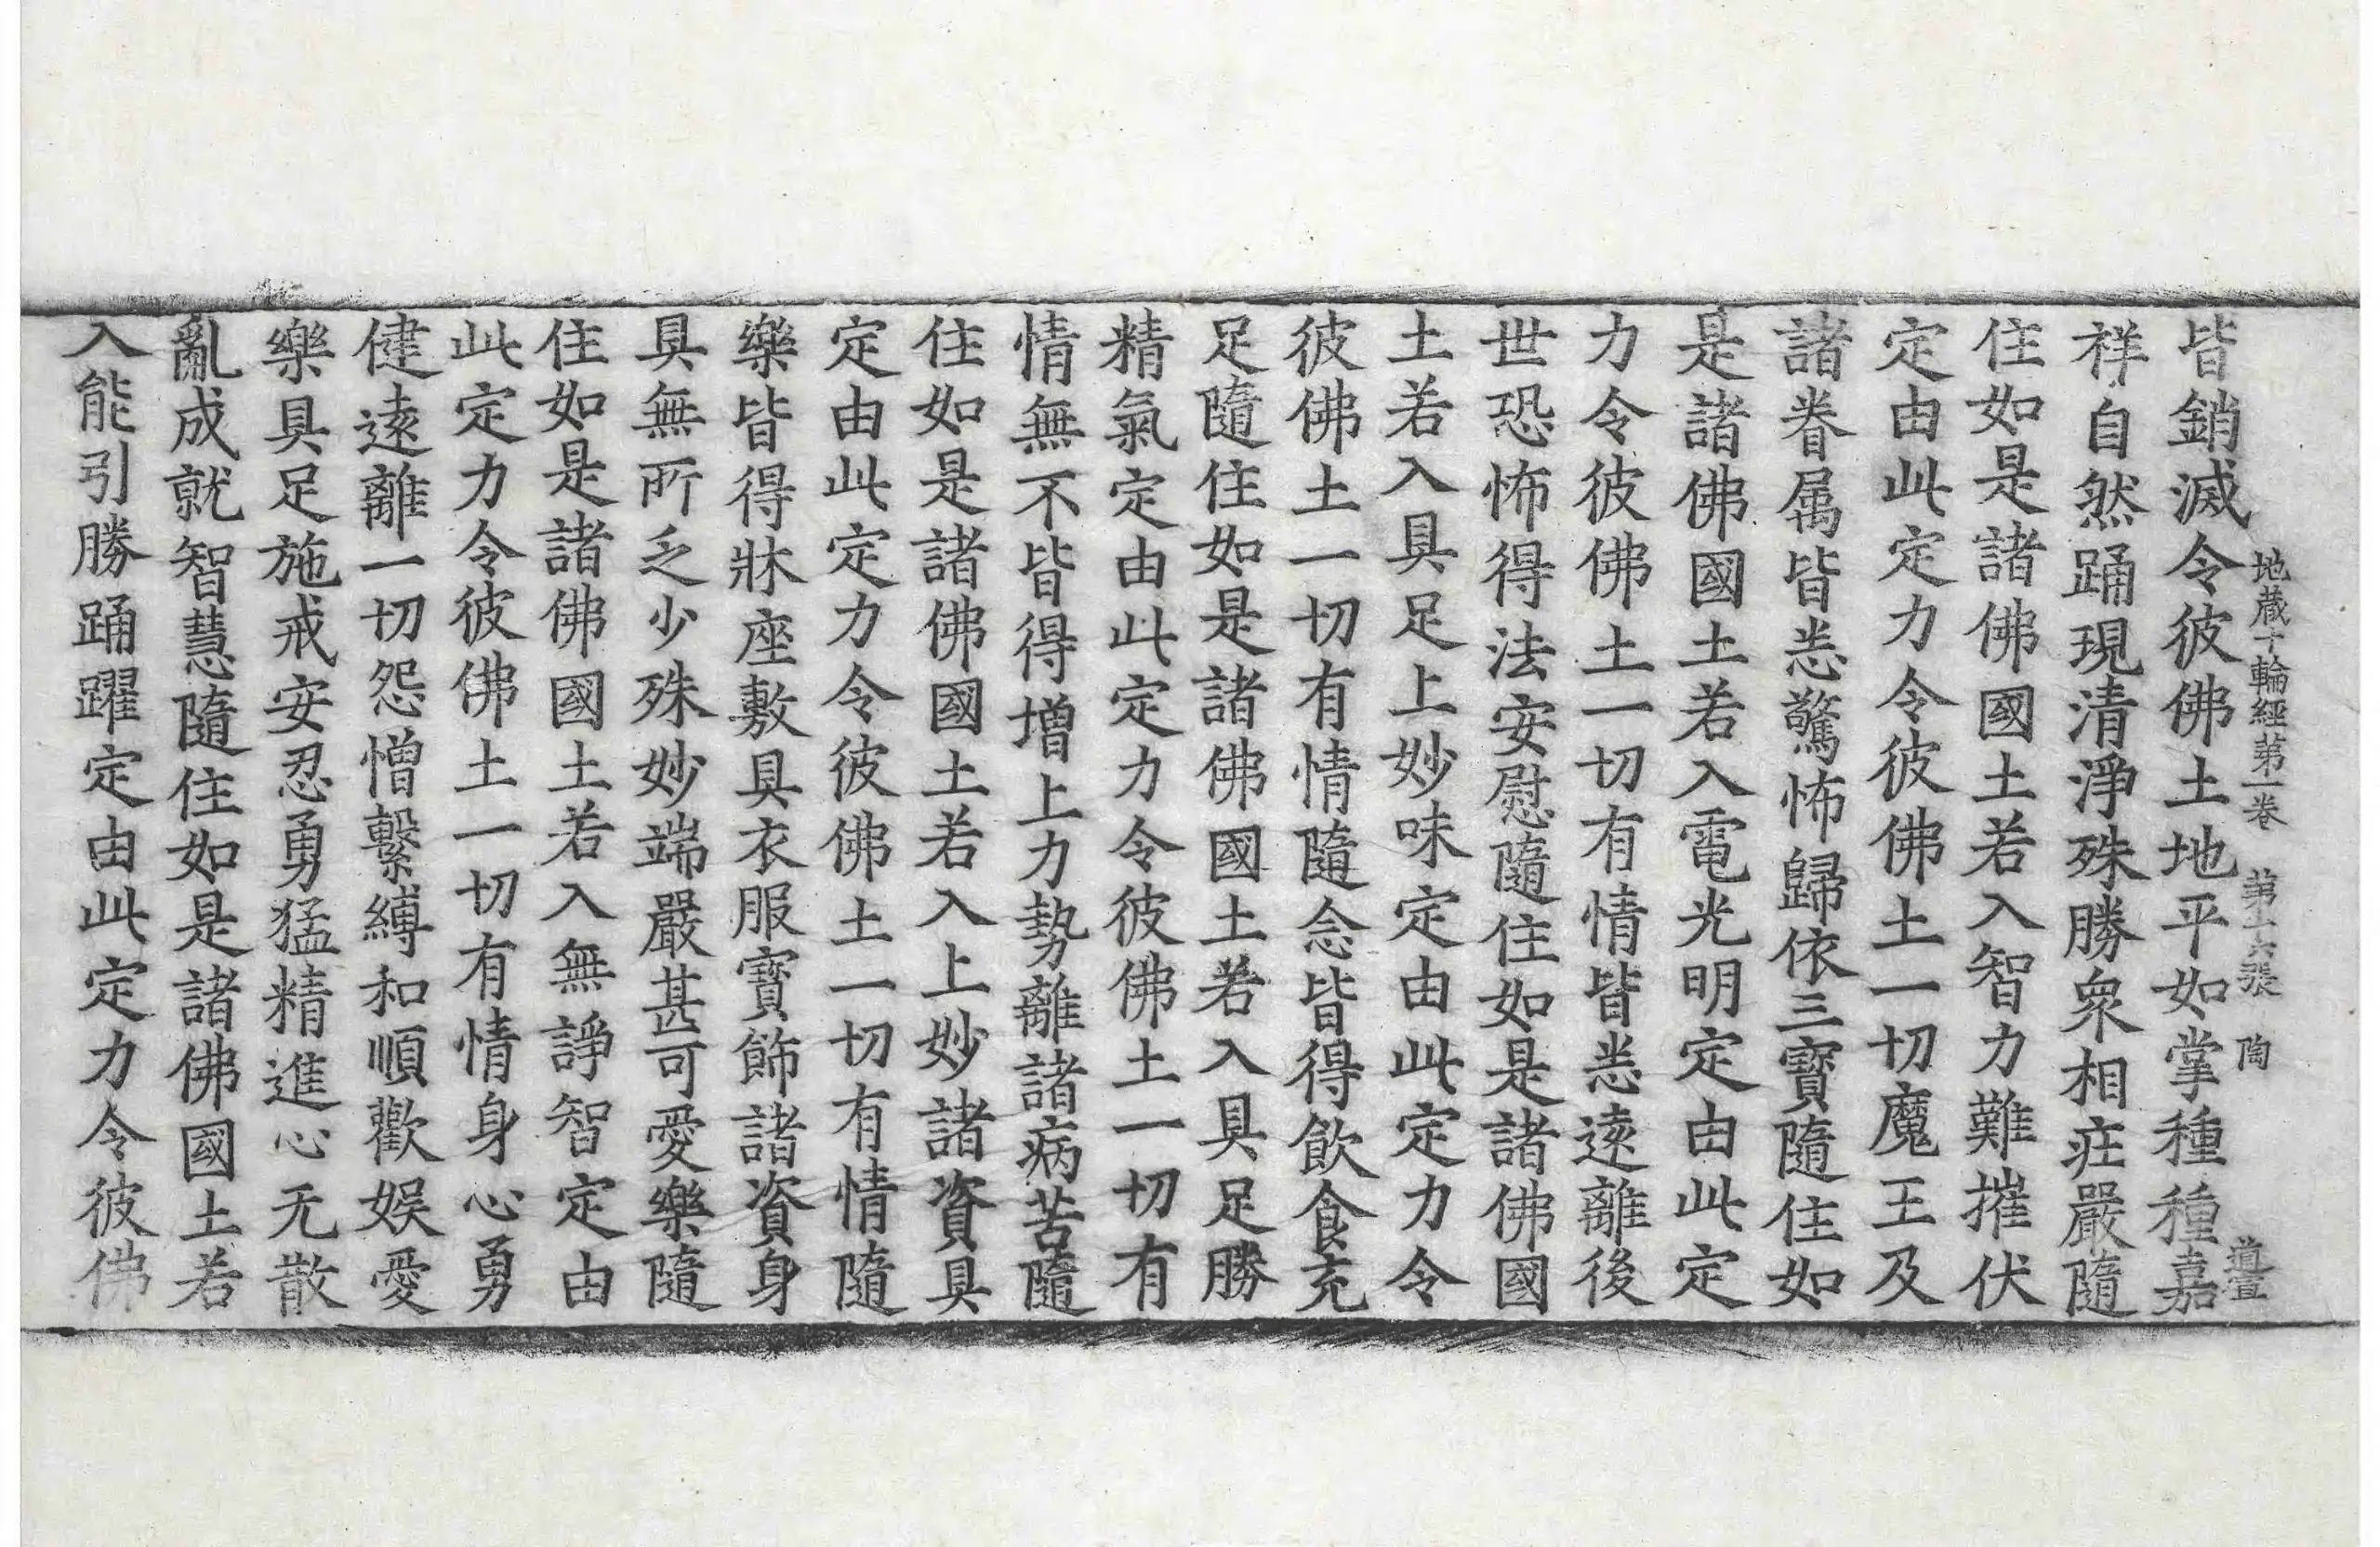 地蔵十輪經苐一卷　苐十六張　陶　道萱
皆銷滅令彼佛土地平如掌種種嘉
祥自然踊現清淨殊勝衆相庄嚴隨
住如是諸佛國土若入智力難摧伏
定由此定力令彼佛土一切魔王及
諸眷属皆悉驚怖歸依三寶隨住如
是諸佛國土若入電光明定由此定
力令彼佛土一切有情皆悉遠離後
世恐怖得法安慰隨住如是諸佛國
土若入具足上妙味定由此定力令
彼佛土一切有情隨念皆得飲食充
足隨住如是諸佛國土若入具足勝
精氣定由此定力令彼佛土一切有
情無不皆得增上力勢離諸病苦隨
住如是諸佛國土若入上妙諸資具
定由此定力令彼佛土一切有情隨
樂皆得牀座敷具衣服寶飾諸資身
具無所乏少殊妙端嚴甚可愛樂隨
住如是諸佛國土若入無諍智定由
此定力令彼佛土一切有情身心勇
健遠離一切怨憎繫縛和順歡娛愛
樂具足施戒安忍勇猛精進心无散
亂成就智慧隨住如是諸佛國土若
入能引勝踊躍定由此定力令彼佛